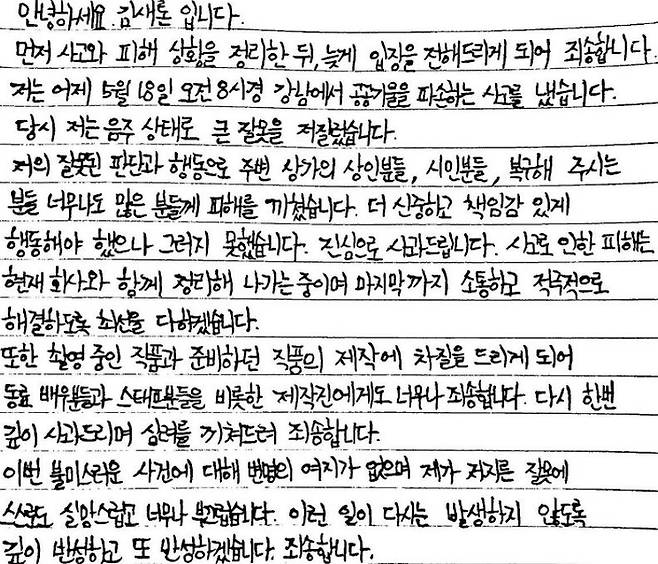 안녕하세요. 김새론 입니다.
먼저 사고와 피해 상황을 정리한 뒤, 늦게 입장을 전해드리게 되어 죄송합니다.
저는 어제 5월 18일 오전 8시경 강남에서 공공기물을 파손하는 사고를 냈습니다.
당시 저는 음주 상태로 큰 잘못을 저질렀습니다.
저의 잘못된 판단과 행동으로 주변 상가의 상인분들, 시민분들, 복구해 주시는
분들 너무나도 많은 분들께 피해를 끼쳤습니다. 더 신중하고 책임감 있게
행동해야 했으나 그러지 못했습니다. 진심으로 사과드립니다. 사고로 인한 피해는
현재 회사와 함께 정리해 나가는 중이며 마지막까지 소통하고 적극적으로
해결하도록 최선을 다하겠습니다.
또한 촬영 중인 작품과 준비하던 작품의 제작에 차질을 드리게 되어
동료 배우분들과 스태프분들을 비롯한 제작진에게도 너무나 죄송합니다. 다시 한번
깊이 사과드리며 심려를 끼쳐드려 죄송합니다.
이번 불미스러운 사건에 대해 변명의 여지가 없으며 제가 저지른 잘못에
스스로도 실망스럽고 너무나 부끄럽습니다. 이런 일이 다시는 발생하지 않도록
깊이 반성하고 또 반성하겠습니다. 죄송합니다.